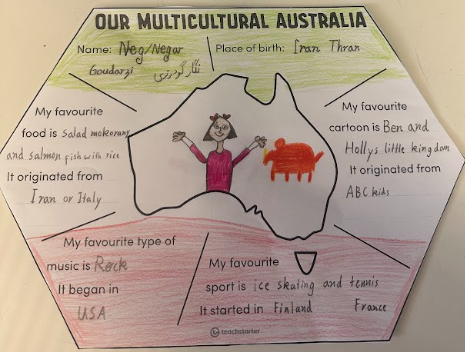 OUR MULTICULTURAL AUSTRALIA
Name: Neg/Negar
Goudarzi نگار گودرزی
Place of birth: Iran Thran
My favourite
food is salad makorany
and salmon fish with rice
It originated from
Iran or Italy
My favourite
cartoon is Ben and
Hollys little kingdom
It originated from
ABC kids
My favourite type of
music is Rock
It began in
USA
My favourite
sport is ice skating and tennis
It started in Finland France
teachstarter